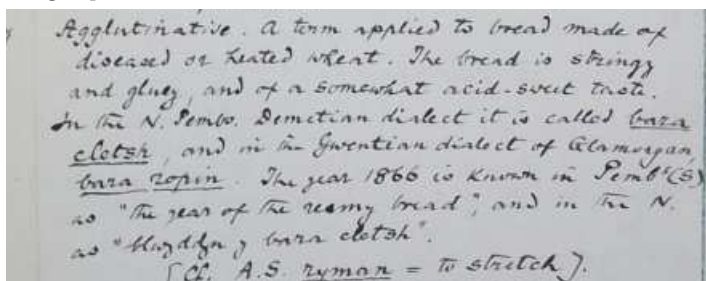 Agglutinative. A term applied to bread made of
diseased or heated wheat. The bread is stringy
and gluey, and of a somewhat acid-sweet taste.
In the N. Pembs. Demetian dialect it is called bara
cletsh, and in the Gwentian dialect of Glamorgan,
bara ropin. The year 1866 is known in Pembs (S)
as "the year of the reamy bread", and in the N.
as "blwyddyn y bara cletsh".
[Cf. A.S. ryman = to stretch].